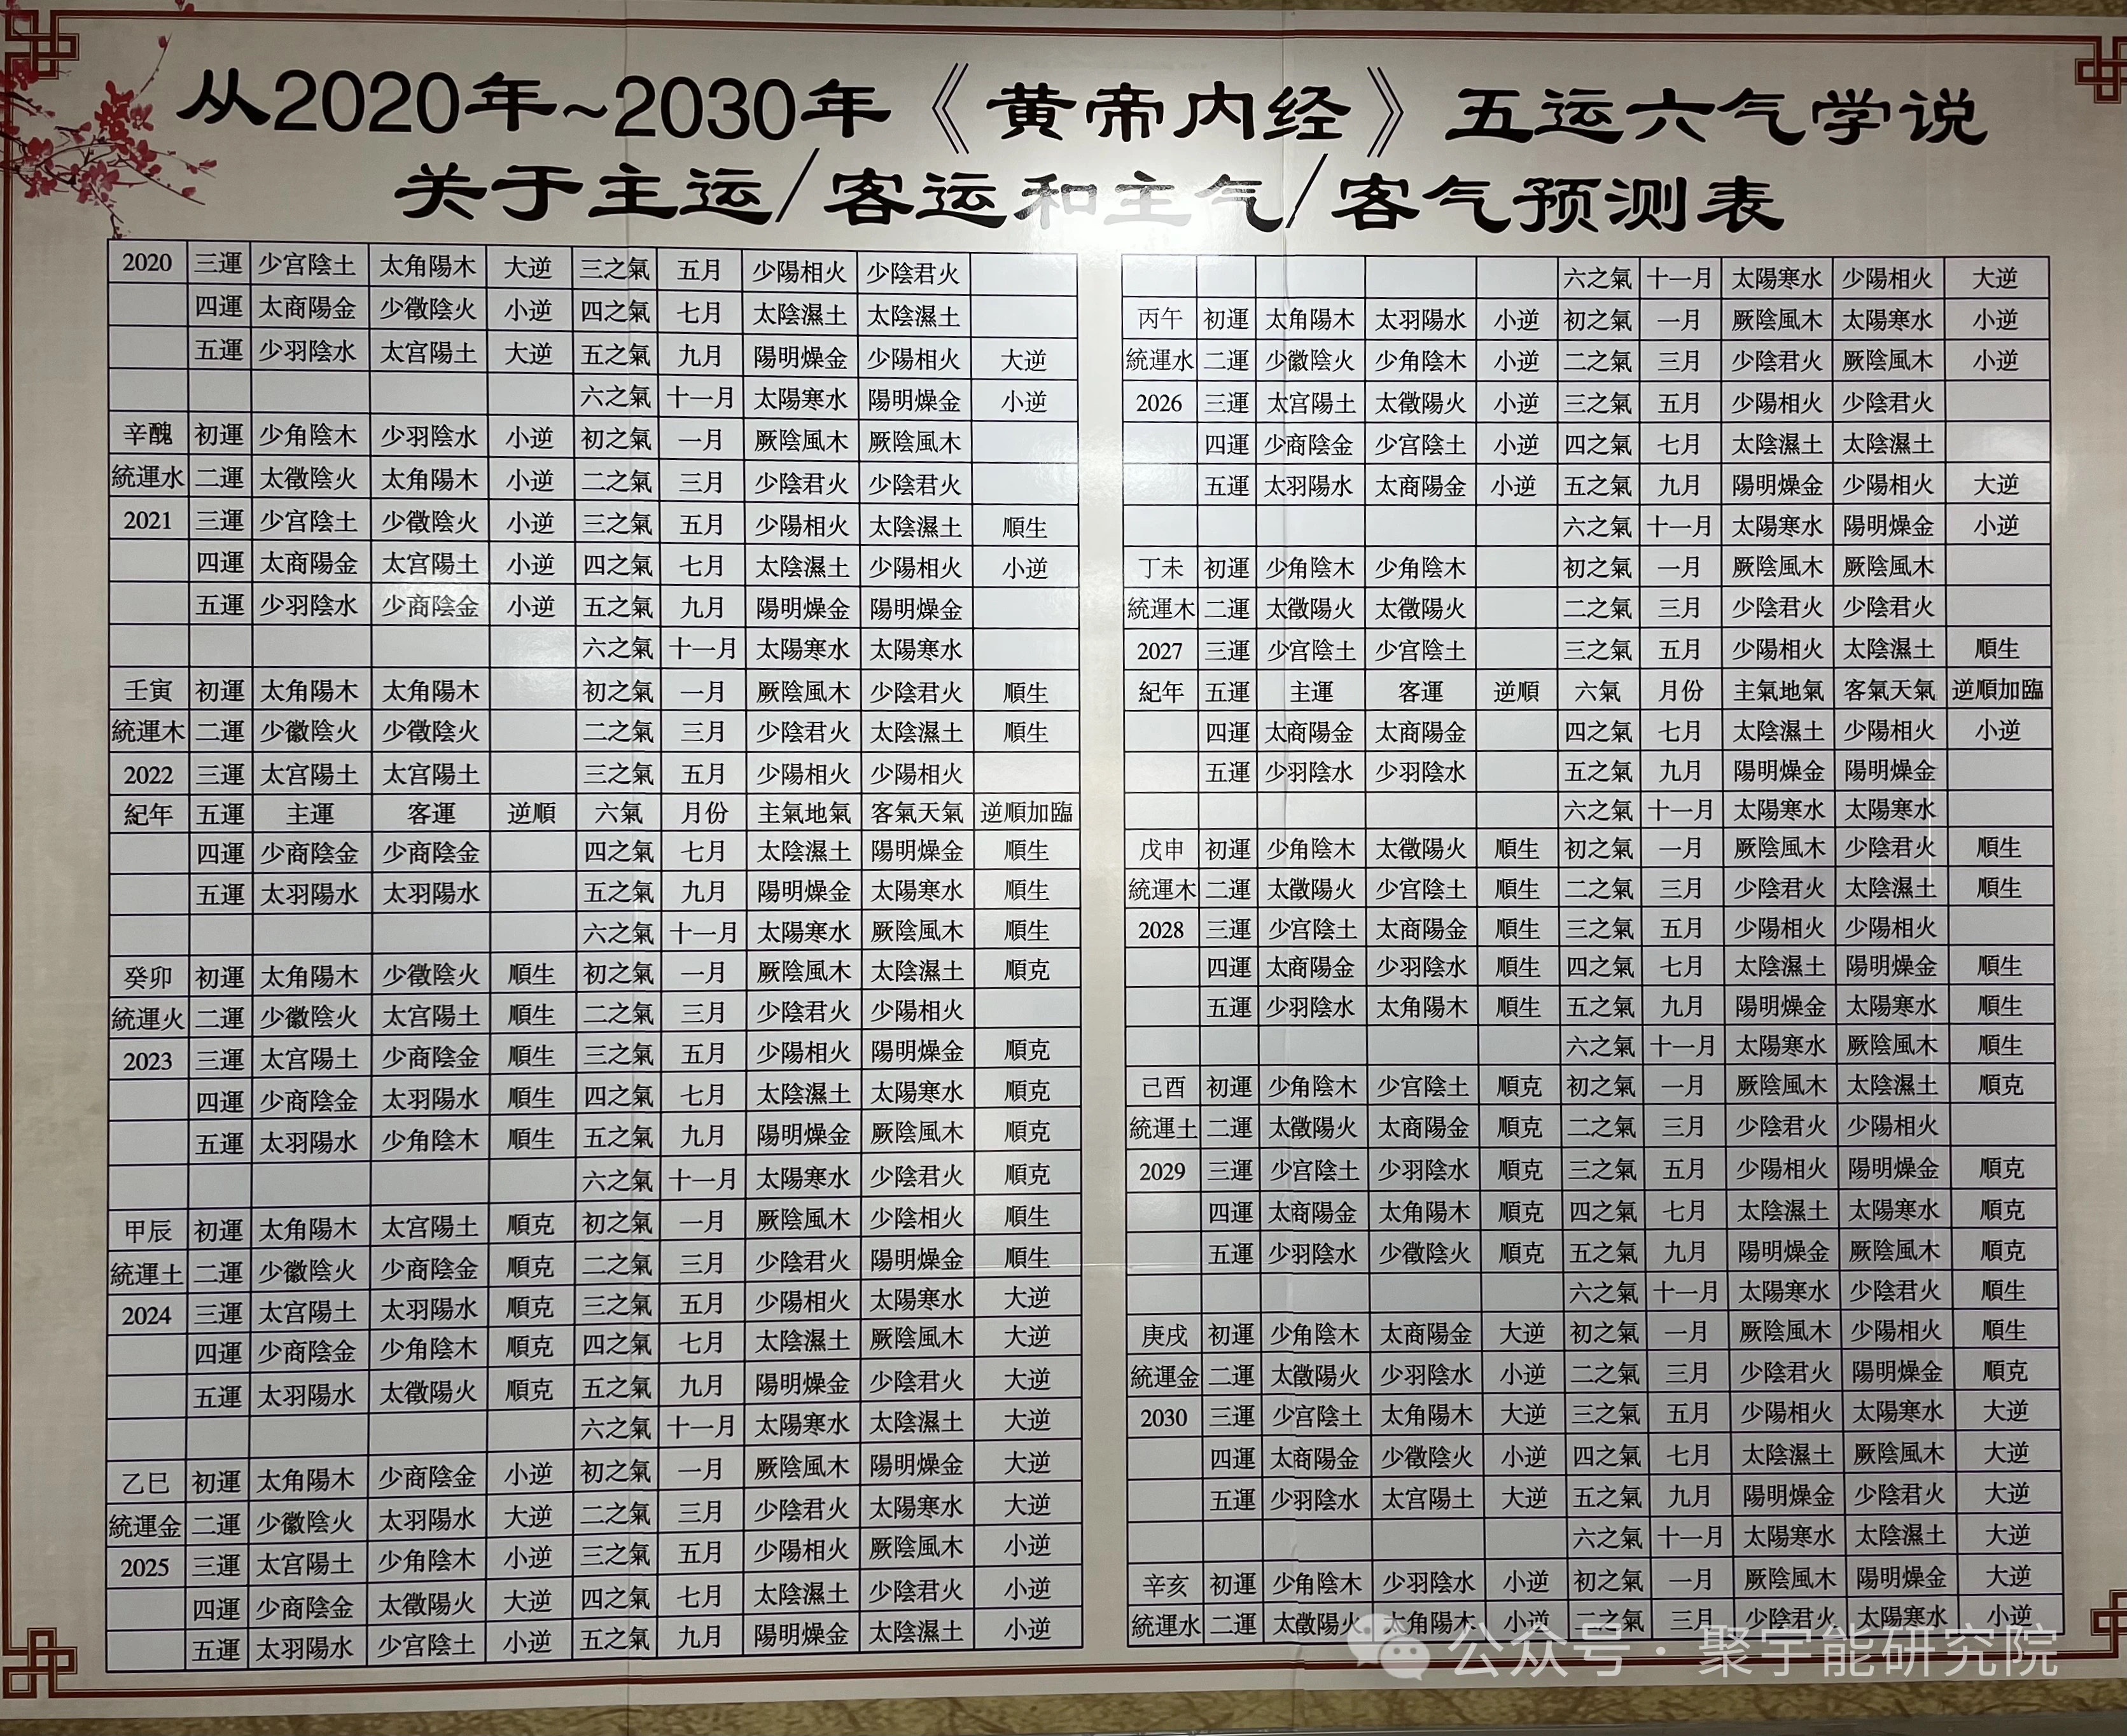 从2020年~2030年《黄帝内经》五运六气学说
关于主运/客运和主气/客气预测表
2020 三運 少宮陰土 太角陽木 大逆 三之氣 五月 少陽相火 少陰君火
四運 太商陽金 少徵陰火 小逆 四之氣 七月 太陰濕土 太陰濕土
五運 少羽陰水 太宮陽土 大逆 五之氣 九月 陽明燥金 少陽相火 大逆
六之氣 十一月 太陽寒水 陽明燥金 小逆
辛醜 初運 少角陰木 少羽陰水 小逆 初之氣 一月 厥陰風木 厥陰風木
統運水 二運 太徵陰火 太角陽木 小逆 二之氣 三月 少陰君火 少陰君火
2021 三運 少宮陰土 少徵陰火 小逆 三之氣 五月 少陽相火 太陰濕土 順生
四運 太商陽金 太宮陽土 小逆 四之氣 七月 太陰濕土 少陽相火 小逆
五運 少羽陰水 少商陰金 小逆 五之氣 九月 陽明燥金 陽明燥金
六之氣 十一月 太陽寒水 太陽寒水
壬寅 初運 太角陽木 太角陽木 初之氣 一月 厥陰風木 少陰君火 順生
統運木 二運 少徵陰火 少徵陰火 二之氣 三月 少陰君火 太陰濕土 順生
2022 三運 太宮陽土 太宮陽土 三之氣 五月 少陽相火 少陽相火
紀年 五運 主運 客運 逆順 六氣 月份 主氣地氣 客氣天氣 逆順加臨
四運 少商陰金 少商陰金 四之氣 七月 太陰濕土 陽明燥金 順生
五運 太羽陽水 太羽陽水 五之氣 九月 陽明燥金 太陽寒水 順生
六之氣 十一月 太陽寒水 厥陰風木 順生
癸卯 初運 太角陽木 少徵陰火 順生 初之氣 一月 厥陰風木 太陰濕土 順克
統運火 二運 少徵陰火 太宮陽土 順生 二之氣 三月 少陰君火 少陽相火
2023 三運 太宮陽土 少商陰金 順生 三之氣 五月 少陽相火 陽明燥金 順克
四運 少商陰金 太羽陽水 順生 四之氣 七月 太陰濕土 太陽寒水 順克
五運 太羽陽水 少角陰木 順生 五之氣 九月 陽明燥金 厥陰風木 順克
六之氣 十一月 太陽寒水 少陰君火 順克
甲辰 初運 太角陽木 太宮陽土 順克 初之氣 一月 厥陰風木 少陰相火 順生
統運土 二運 少徵陰火 少商陰金 順克 二之氣 三月 少陰君火 陽明燥金 順生
2024 三運 太宮陽土 太羽陽水 順克 三之氣 五月 少陽相火 太陽寒水 大逆
四運 少商陰金 少角陰木 順克 四之氣 七月 太陰濕土 厥陰風木 大逆
五運 太羽陽水 太徵陽火 順克 五之氣 九月 陽明燥金 少陰君火 大逆
六之氣 十一月 太陽寒水 太陰濕土 大逆
乙巳 初運 太角陽木 少商陰金 小逆 初之氣 一月 厥陰風木 陽明燥金 大逆
統運金 二運 少徵陰火 太羽陽水 大逆 二之氣 三月 少陰君火 太陽寒水 大逆
2025 三運 太宮陽土 少角陰木 小逆 三之氣 五月 少陽相火 厥陰風木 小逆
四運 少商陰金 太徵陽火 大逆 四之氣 七月 太陰濕土 少陰君火 小逆
五運 太羽陽水 少宮陰土 小逆 五之氣 九月 陽明燥金 太陰濕土 小逆
六之氣 十一月 太陽寒水 少陽相火 大逆
丙午 初運 太角陽木 太羽陽水 小逆 初之氣 一月 厥陰風木 太陽寒水 小逆
統運水 二運 少徵陰火 少角陰木 小逆 二之氣 三月 少陰君火 厥陰風木 小逆
2026 三運 太宮陽土 太徵陽火 小逆 三之氣 五月 少陽相火 少陰君火
四運 少商陰金 少宮陰土 小逆 四之氣 七月 太陰濕土 太陰濕土
五運 太羽陽水 太商陽金 小逆 五之氣 九月 陽明燥金 少陽相火 大逆
六之氣 十一月 太陽寒水 陽明燥金 小逆
丁未 初運 少角陰木 少角陰木 初之氣 一月 厥陰風木 厥陰風木
統運木 二運 太徵陽火 太徵陽火 二之氣 三月 少陰君火 少陰君火
2027 三運 少宮陰土 少宮陰土 三之氣 五月 少陽相火 太陰濕土 順生
紀年 五運 主運 客運 逆順 六氣 月份 主氣地氣 客氣天氣 逆順加臨
四運 太商陽金 太商陽金 四之氣 七月 太陰濕土 少陽相火 小逆
五運 少羽陰水 少羽陰水 五之氣 九月 陽明燥金 陽明燥金
六之氣 十一月 太陽寒水 太陽寒水
戊申 初運 少角陰木 太徵陽火 順生 初之氣 一月 厥陰風木 少陰君火 順生
統運木 二運 太徵陽火 少宮陰土 順生 二之氣 三月 少陰君火 太陰濕土 順生
2028 三運 少宮陰土 太商陽金 順生 三之氣 五月 少陽相火 少陽相火
四運 太商陽金 少羽陰水 順生 四之氣 七月 太陰濕土 陽明燥金 順生
五運 少羽陰水 太角陽木 順生 五之氣 九月 陽明燥金 太陽寒水 順生
六之氣 十一月 太陽寒水 厥陰風木 順生
己酉 初運 少角陰木 少宮陰土 順克 初之氣 一月 厥陰風木 太陰濕土 順克
統運土 二運 太徵陽火 太商陽金 順克 二之氣 三月 少陰君火 少陽相火
2029 三運 少宮陰土 少羽陰水 順克 三之氣 五月 少陽相火 陽明燥金 順克
四運 太商陽金 太角陽木 順克 四之氣 七月 太陰濕土 太陽寒水 順克
五運 少羽陰水 少徵陰火 順克 五之氣 九月 陽明燥金 厥陰風木 順克
六之氣 十一月 太陽寒水 少陰君火 順生
庚戌 初運 少角陰木 太商陽金 大逆 初之氣 一月 厥陰風木 少陽相火 順生
統運金 二運 太徵陽火 少羽陰水 小逆 二之氣 三月 少陰君火 陽明燥金 順克
2030 三運 少宮陰土 太角陽木 大逆 三之氣 五月 少陽相火 太陽寒水 大逆
四運 太商陽金 少徵陰火 小逆 四之氣 七月 太陰濕土 厥陰風木 大逆
五運 少羽陰水 太宮陽土 大逆 五之氣 九月 陽明燥金 少陰君火 大逆
六之氣 十一月 太陽寒水 太陰濕土 大逆
辛亥 初運 少角陰木 少羽陰水 小逆 初之氣 一月 厥陰風木 陽明燥金 大逆
統運水 二運 太徵陽火 太角陽木 小逆 二之氣 三月 少陰君火 太陽寒水 小逆
公众号·聚宇能研究院